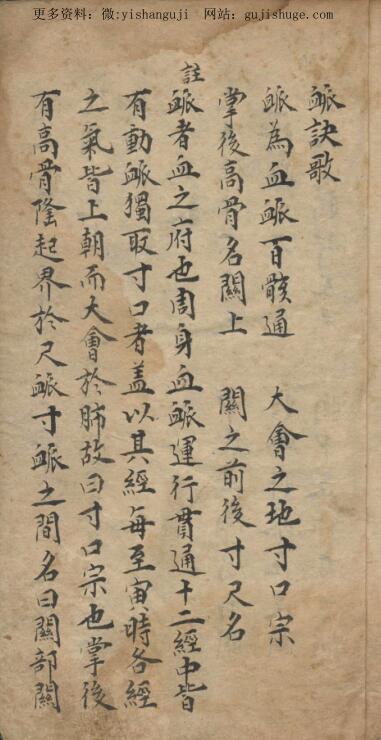 更多资料：微:yishanguji　网站：gujishuge.com
脈訣歌
脈為血脈百骸通　大會之地寸口宗
掌後高骨名關上　關之前後寸尺名
註
脈者血之府也周身血脈運行貫通十二經中皆
有動脈獨取寸口者蓋以其經每至寅時各經
之氣皆上朝而大會於肺故曰寸口宗也掌後
有高骨隆起界於尺脈寸脈之間名曰關部關